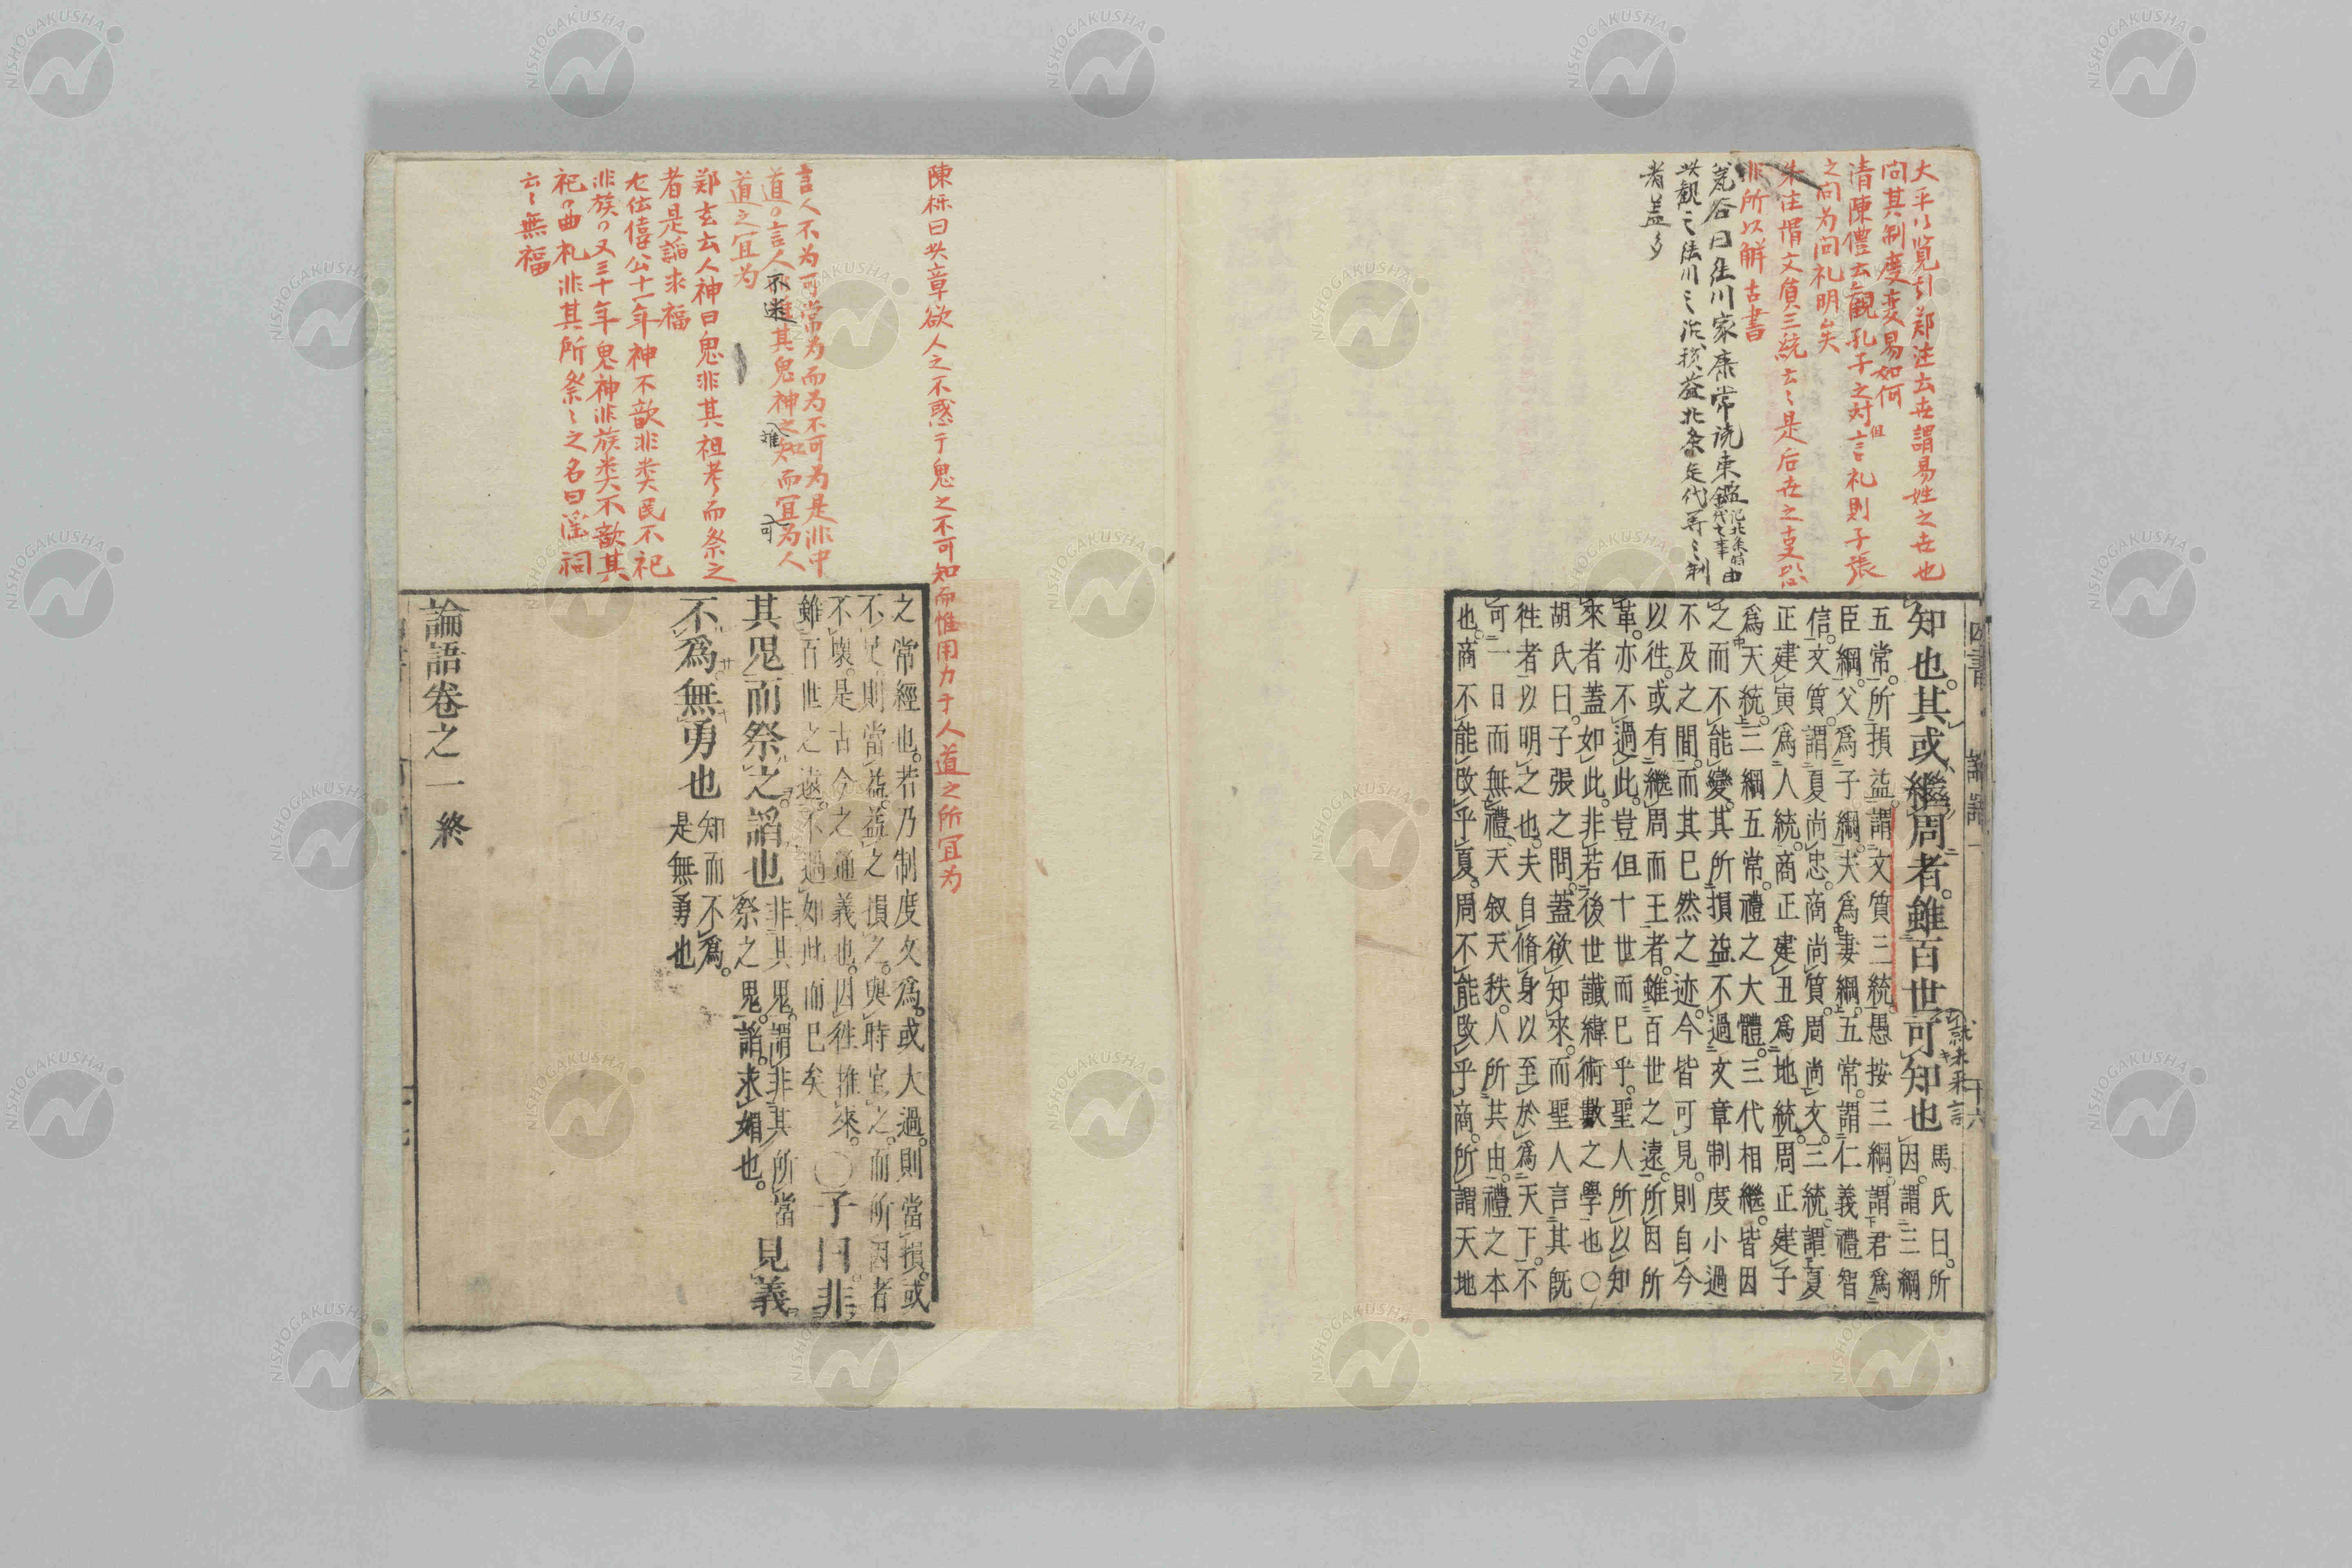 大平御覧引鄭注云世謂易姓之世也
問其制度変易如何
清陳澧云観孔子之対但言礼則子張
之問为問礼明矣
朱注謂文質三統云〻是后世之
非所以解古書
荒谷曰徳川家康常読東鑑
由
此観之徳川之法
者蓋多
四書
論語一
十六
知也其或繼周者雖百世可知也
馬氏曰所
因謂三綱
五常所損益謂文質三統愚按三綱謂君爲
臣綱父爲子綱夫爲妻綱五常謂仁義禮智
信文質謂夏尚忠商尚質周尚文三統謂夏
正建寅爲人統商正建丑爲地統周正建子
爲天統三綱五常禮之大體三代相繼皆因
之而不能變其所損益不過文章制度小過
不及之間而其已然之迹今皆可見則自今
以往或有繼周而王者雖百世之遠所因所
革亦不過此豈但十世而已乎聖人所以知
來者蓋如此非若後世讖緯術數之學也○
胡氏曰子張之問蓋欲知來而聖人言其既
往者以明之也夫自脩身以至於爲天下不
可一日而無禮天叙天秩人所其由禮之本
也商不能改乎夏周不能改乎商所謂天地
陳栎曰此章欲人之不惑于鬼之不可知而惟用力于人道之所宜为
言人不为可常为而为不可为是非中
道〇言人不惟其鬼神之知而宜为人
不迷
難
可
道之宜为
郑玄云人神曰鬼非其祖考而祭之
者是謟求福
左伝僖公十年神不歆非类民不祀
非族〇又三十年鬼神非族类不歆其
祀〇曲礼非其所祭〻之名曰淫祠
云〻無福
之常經也若乃制度文爲或大過則當損或
不足則當益益之損之與時宜之而所因者
不壞是古今之通義也因往推來○子曰非
雖百世之遠不過如此而已矣
其鬼而祭之謟也
非其鬼謂非其所當
祭之鬼謟求媚也
見義
不爲無勇也
知而不爲
是無勇也
論語卷之一終
NISHOGAKUSHA